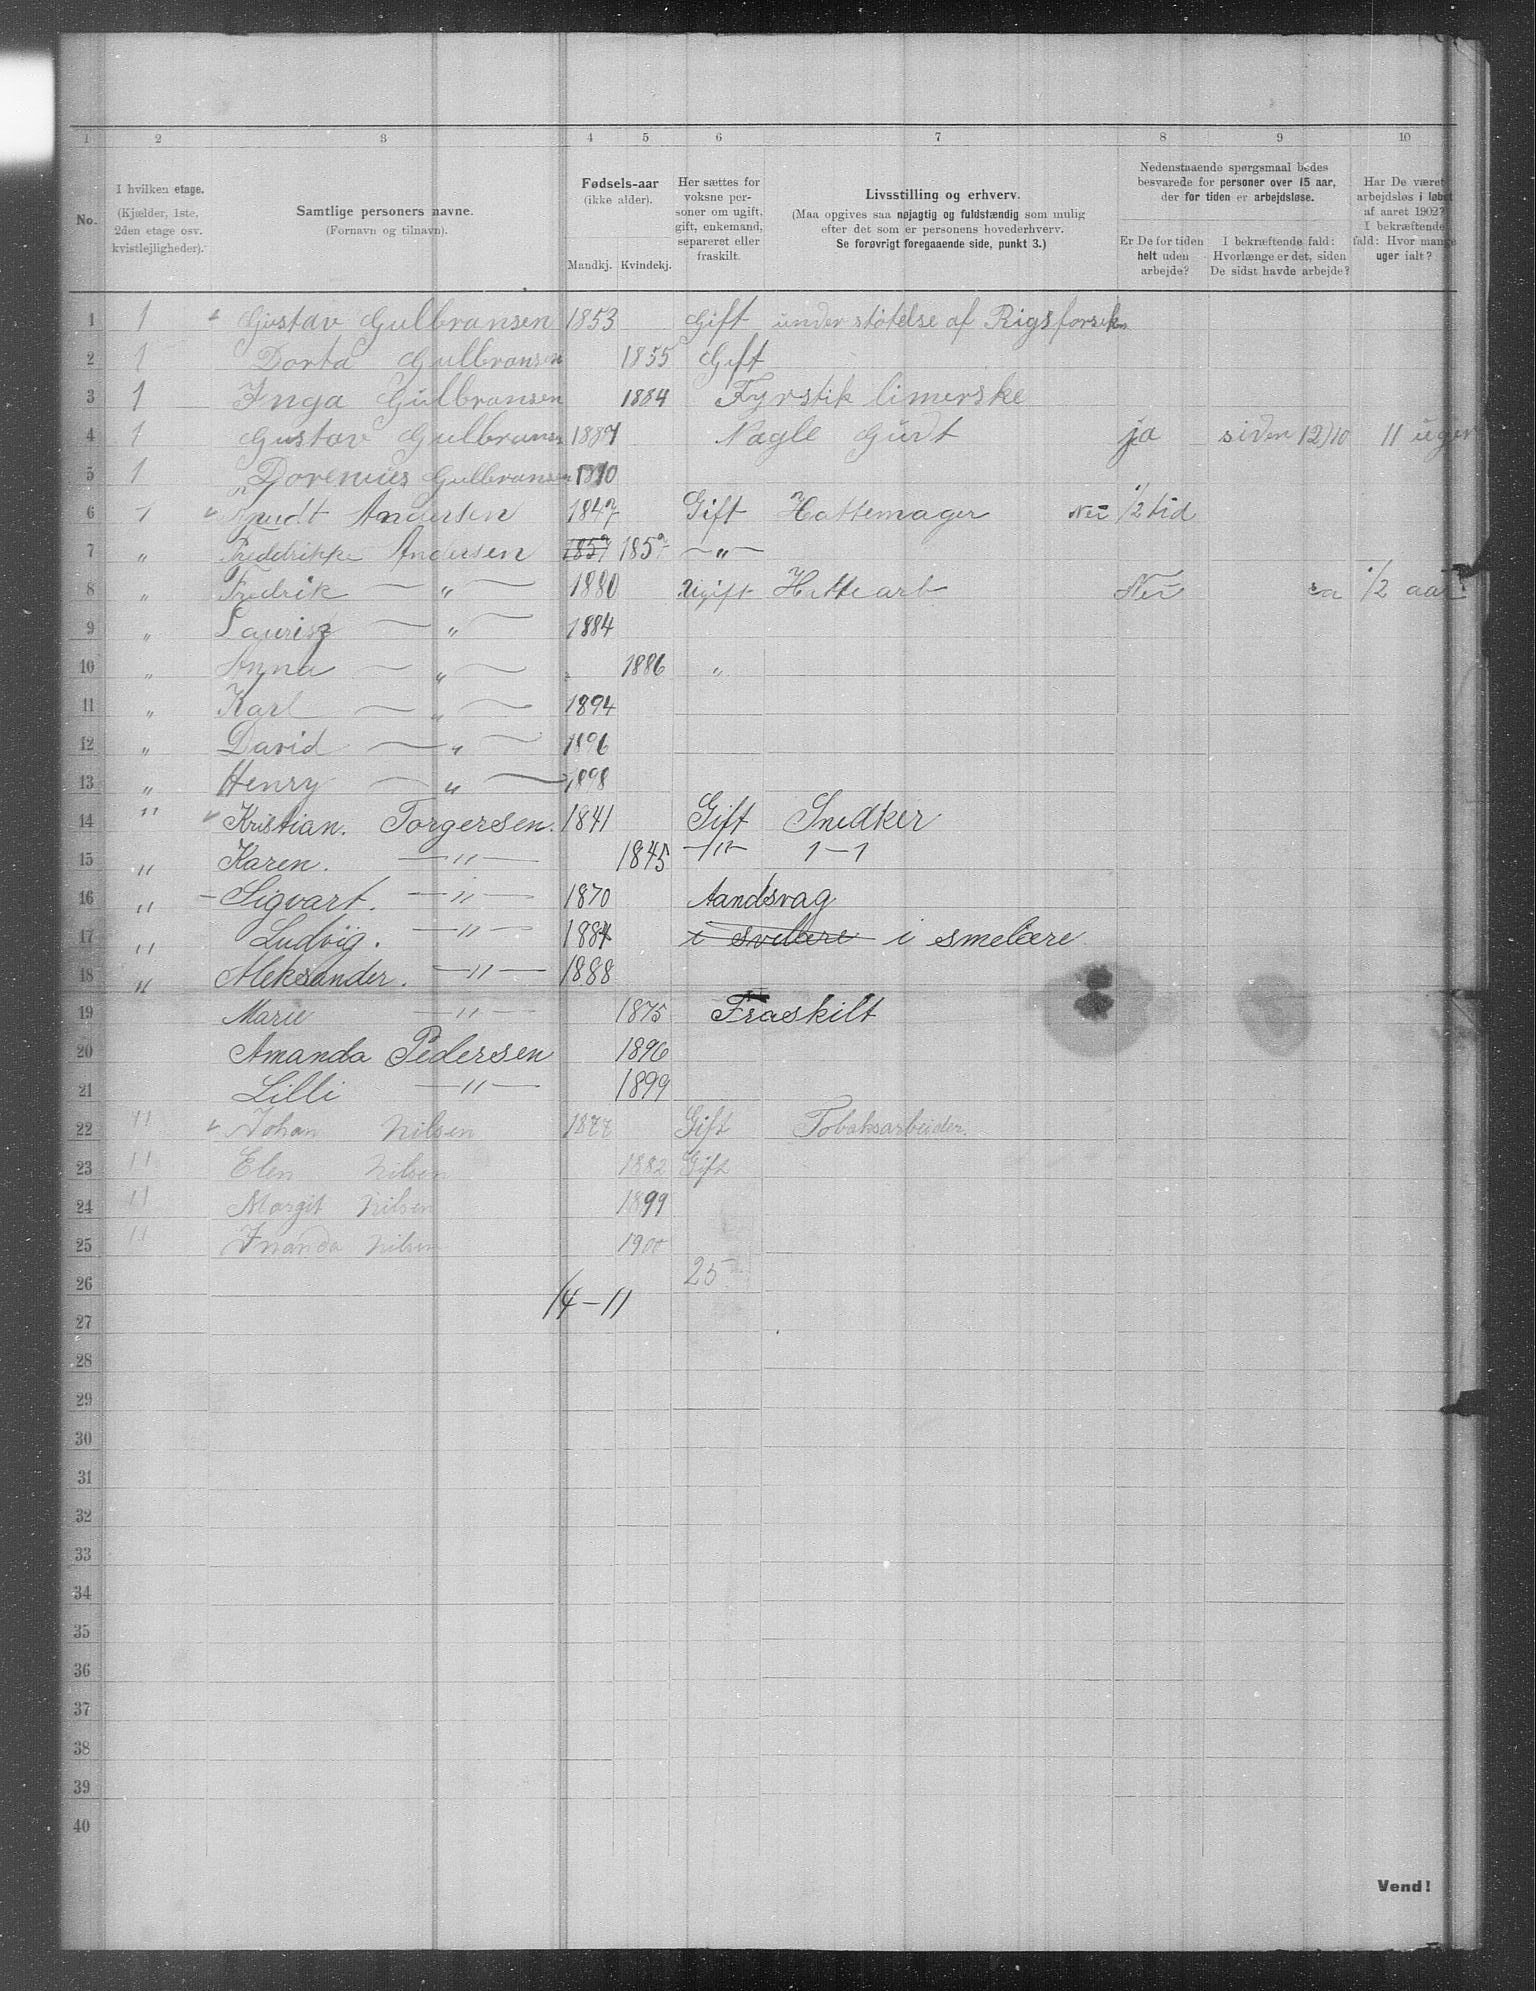 1 2 3 4 5 6 7 8 9 10
No.
I hvilken etage. (Kjælder, 1ste, 2den etage osv. kvistlejligheder).
Samtlige personers navne. (Fornavn og tilnavn).
Fødsels-aar (ikke alder). Mandkj. Kvindekj.
Her sættes for voksne personer om ugift, gift, enkemand, separeret eller fraskilt.
Livsstilling og erhverv. (Maa opgives saa nøjagtig og fuldstændig som mulig efter det som er personens hovederhverv. Se forøvrigt foregaaende side, punkt 3.)
Nedenstaaende spørgsmaal bedes besvarede for personer over 15 aar, der for tiden er arbejdsløse.
Er De for tiden helt uden arbejde?
I bekræftende fald: Hvorlænge er det, siden De sidst havde arbejde?
Har De været arbejdsløs i løbet af aaret 1902? I bekræftende fald: Hvor mange uger ialt?
1 1 Gustav Gulbransen 1853 Gift under støtelse af Rigsforsik
2 1 Dorta Gulbransen 1855 Gift
3 1 Inga Gulbransen 1884 Fyrstik limerske
4 1 Gustav Gulbransen 1887 Nagle Gudt ja siden 12/10 11 uger
5 1 Gulbransen
6 Knudt Andersen 1847 Gift Hattemager Nei 1/2 tid
7 „ Fredrikke Andersen 1857 1857 — „ —
8 „ Fredrik — „ — 1880 Ugift Hattearb Nei 1/2 aar
9 „ Laurisz — „ — 1884
10 „ Anna — „ — „ 1886 „
11 „ Karl — „ — 1894
12 „ David — „ — 1896
13 „ Henry — „ — 1898
14 " Kristian. Torgersen. 1841 Gift Snedker
15 " Karen. — " — 1845 — " — 1 — 1
16 " - Sigvart. — " — 1870 Aandsvag
17 " Ludvig. — " — 1884 i svelære i smelære
18 " Aleksander. — " — 1888
19 Marie — " — 1875 Fraskilt
20 Amanda Pedersen 1896
21 Lilli — " — 1899
22 " Johan Nilsen 1877 Gift Tobaksarbeider.
23 " Elen Nilsen 1882 Gift
24 " Margit Nilsen 1899
25 " Nilsen 1900
26 25
27 14 - 11
28
29
30
31
32
33
34
35
36
37
38
39
40
Vend!